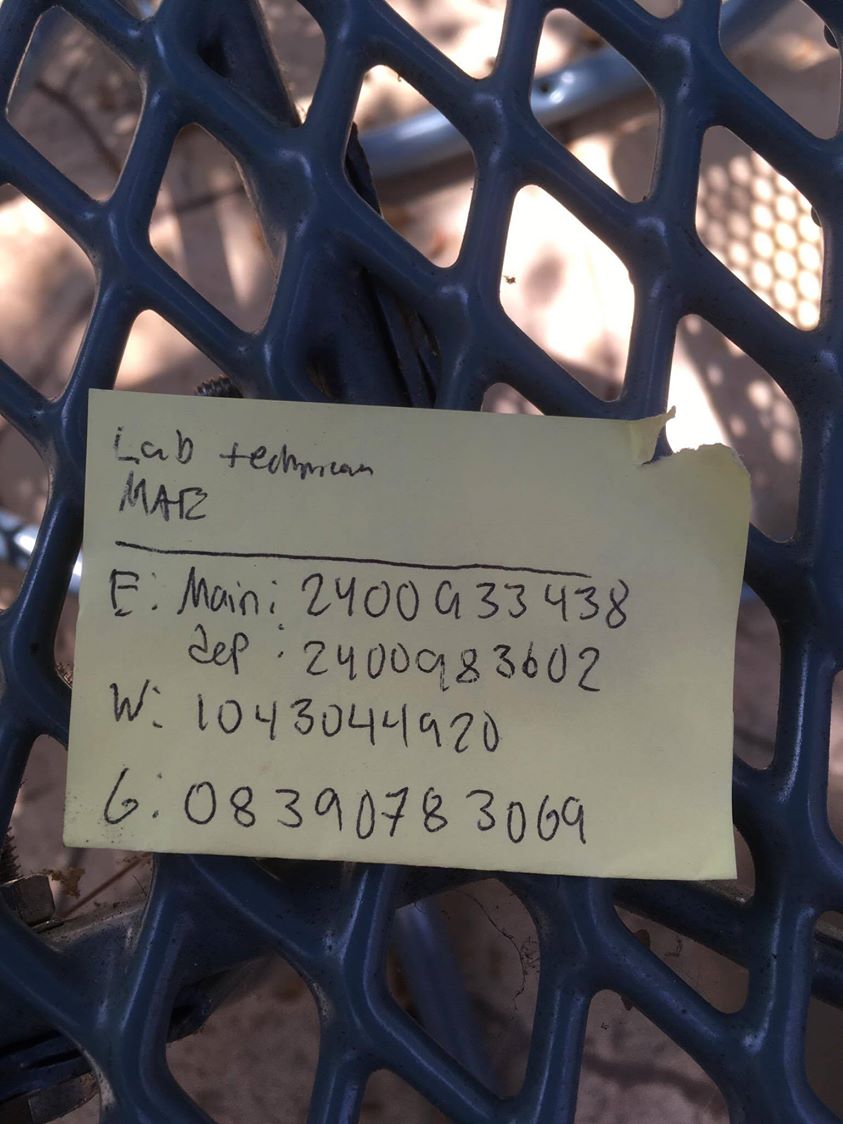 Lab technician
E: Main: 2400933438
dep: 2400983602
W: 1043044920
G: 08390783069